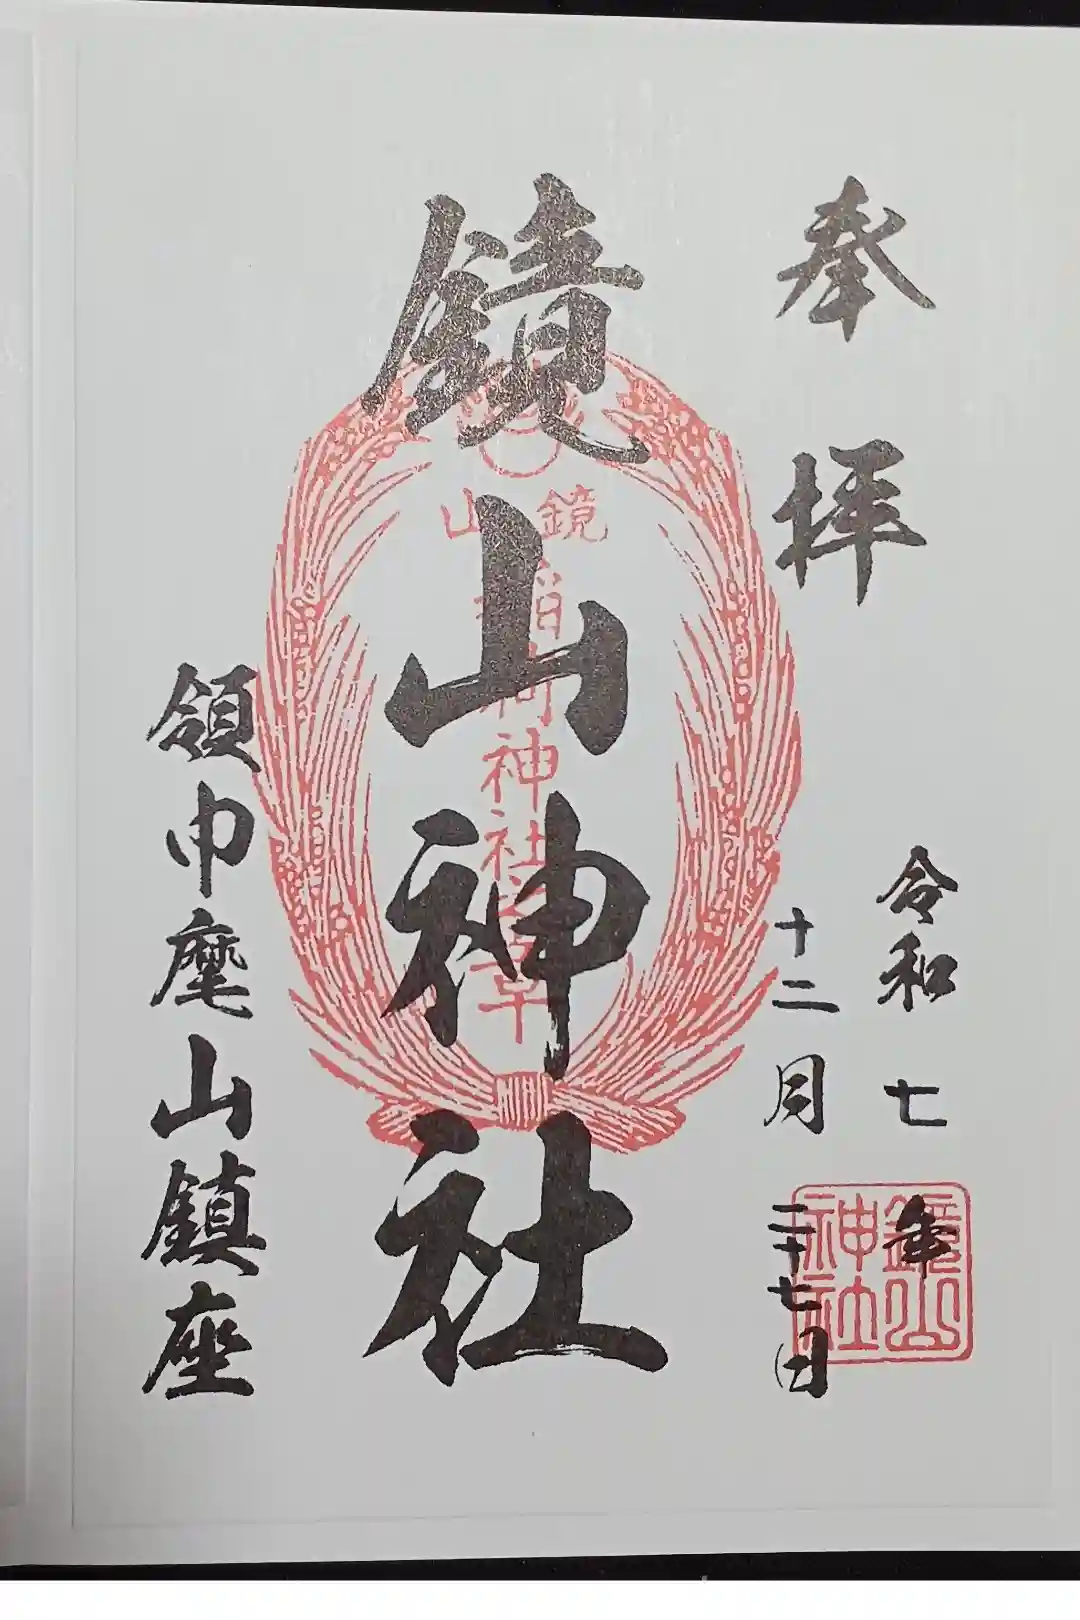 奉拝
令和七年
十二月二十七日
鏡山神社
鏡山
稲荷神社之章
鏡山神社
領巾麾山鎮座